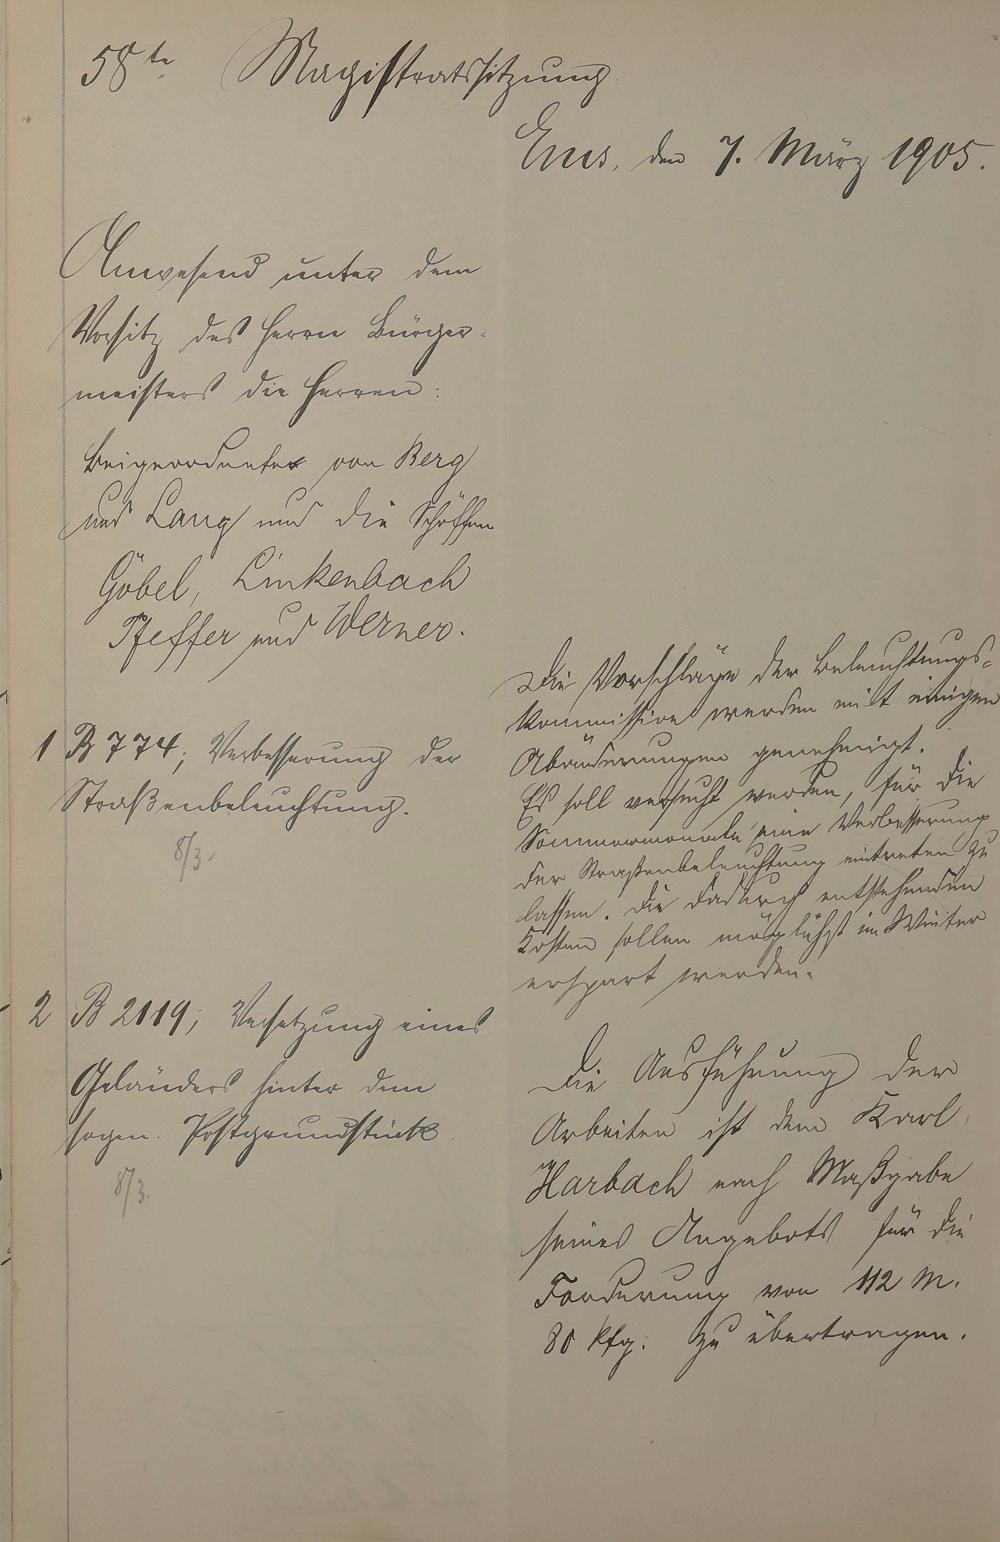 58te Magistratssitzung
Ems, den 7. März 1905.
Anwesend unter dem
Vorsitz des Herrn Bürger-
meisters die Herren:
Beigeordnete von Berg
und Lang und die Schöffen
Göbel, Linkenbach
Pfeffer und Werner.
1 B 774; Verbesserung der
Straßenbeleuchtung.
8/3.
Die Vorschläge der Beleuchtungs-
kommission werden mit einigen
Abänderungen genehmigt.
Es soll versucht werden, für die
Sommermonate eine Verbesserung
der Straßenbeleuchtung eintreten zu
lassen. Die dadurch entstehenden
Kosten sollen möglichst im Winter
erspart werden.
2 B 2119; Versetzung eines
Geländers hinter dem
sogen. Postgrundstück.
8/3.
Die Ausführung der
Arbeiten ist dem Karl
Harbach nach Maßgabe
seines Angebots für die
Forderung von 112 M.
80 Pfg. zu übertragen.